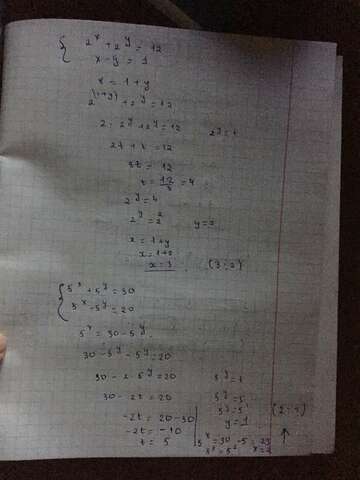 { 2^x + 2^y = 12
x - y = 1
x = 1 + y
2^(1+y) + 2^y = 12
2 · 2^y + 2^y = 12    2^y = t
2t + t = 12
3t = 12
t = 12/3 = 4
2^y = 4
2^y = 2^2    y = 2
x = 1 + y
x = 1 + 2
x = 3    (3 ; 2)
{ 5^x + 5^y = 30
5^x - 5^y = 20
5^x = 30 - 5^y
30 - 5^y - 5^y = 20
30 - 2 · 5^y = 20    5^y = t
30 - 2t = 20    5^y = 5
-2t = 20 - 30    5^y = 5^1    (2 ; 1)
-2t = -10    y = 1
t = 5    5^x = 30 - 5 = 25
5^x = 5^2    x = 2